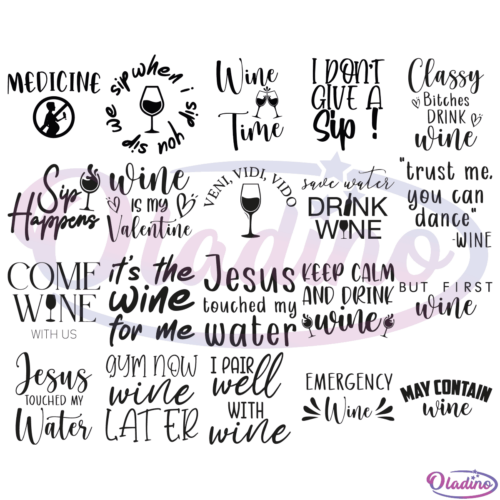 MEDICINE
sip when i sip you sip we sip
Wine
Time
I DON'T
GIVE A
Sip !
Classy
Bitches
DRINK
wine
Sip
Happens
wine
IS MY
Valentine
VENI, VIDI, VIDO
save water
DRINK
WINE
"trust me,
you can
dance"
-WINE
COME
WINE
WITH US
it's the
wine
for me
Jesus
touched my
water
KEEP CALM
AND DRINK
wine
BUT FIRST
wine
Jesus
TOUCHED MY
Water
GYM NOW
wine
LATER
I PAIR
well
WITH
wine
EMERGENCY
Wine
MAY CONTAIN
wine
Oladino
Oladino